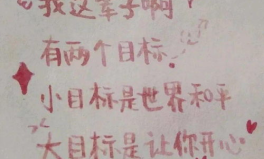 我这辈子啊？
有两个目标
小目标是世界和平
大目标是让你开心